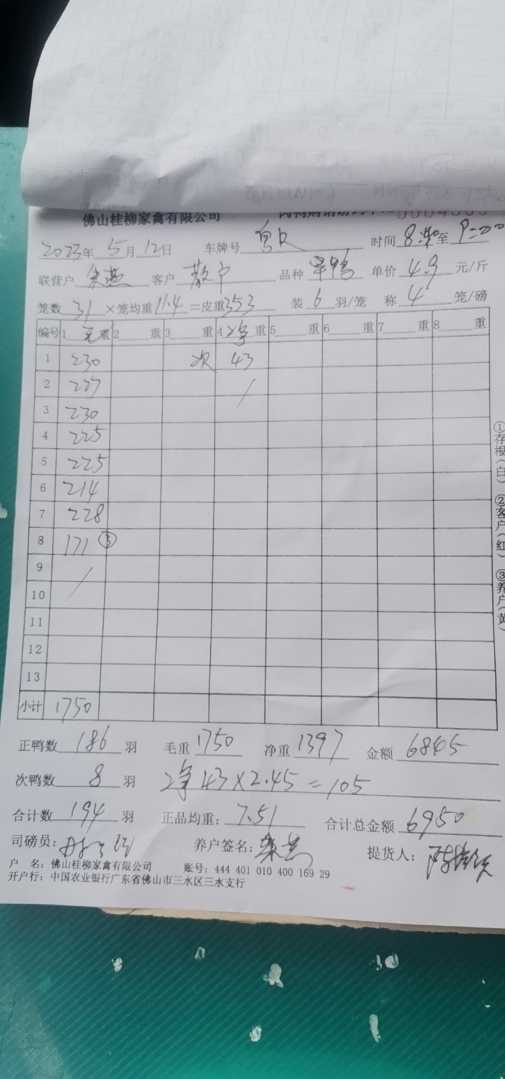 佛山桂柳家禽有限公司
2023年5月12日 车牌号 时间8:40至9:00
联营户 客户 散户 品种 单价4.9元/斤
笼数31×笼均重11.4=皮重353 装6羽/笼 称4笼/磅
编号 1 毛重 2 重 3 重 4 净重 5 重 6 重 7 重 8 重
1 230 次 43
2 227 /
3 230
4 225
5 225
6 214
7 228
8 171 ③
9 /
10
11
12
13
小计 1750
正鸭数186羽 毛重1750 净重1397 金额6845
次鸭数8羽 净43×2.45=105
合计数194羽 正品均重:7.51 合计总金额6950
司磅员: 养户签名: 提货人:
户 名:佛山桂柳家禽有限公司 账号:444 401 010 400 169 29
开户行:中国农业银行广东省佛山市三水区三水支行
①存根(白) ②客户(红) ③养户(黄)